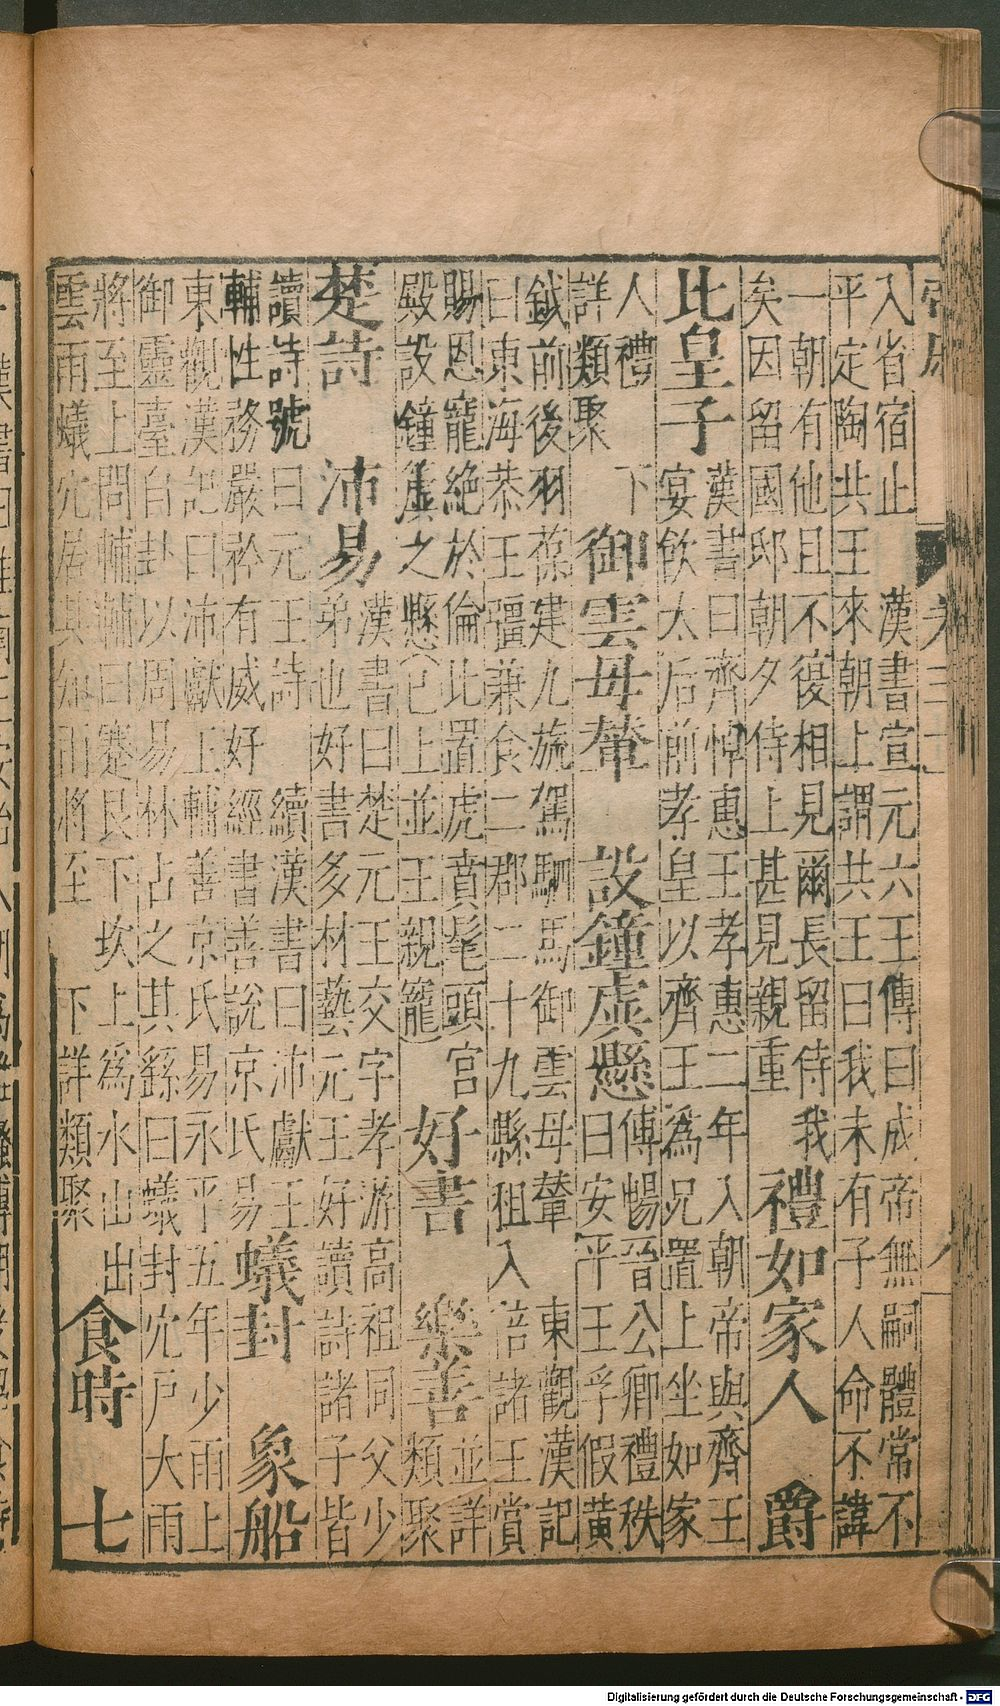 卷三十二
八
入省宿止　漢書宣元六王傳曰成帝無嗣體常不
平定陶共王來朝上謂共王曰我未有子人命不諱
一朝有他且不復相見爾長留侍我
矣因留國邸朝夕侍上甚見親重
禮如家人　爵
比皇子
漢書曰齊悼惠王孝惠二年入朝帝與齊王
宴飲太后前孝皇以齊王爲兄置上坐如家
人禮　下
詳類聚
御雲母輦　設鐘虡懸
傅暢晉公卿禮秩
曰安平王孚假黃
鉞前後羽葆建九旒駕駟馬御雲母輦　東觀漢記
曰東海恭王彊兼食二郡二十九縣租入　倍諸王賞
賜恩寵絕於倫比置虎賁髦頭宮
殿設鐘虡之懸（已上並王親寵）
好書　樂善
並詳
類聚
楚詩　沛易
漢書曰楚元王交字孝游高祖同父少
弟也好書多材藝元王好讀詩諸子皆
讀詩號曰元王詩　續漢書曰沛獻王
輔性務嚴矜有威好經書善說京氏易
蟻封　象船
東觀漢記曰沛獻王輔善京氏易永平五年少雨上
御靈臺自卦以周易林占之其繇曰蟻封穴戶大雨
將至上問輔輔曰蹇艮下坎上爲水出出
雲雨蟻穴居其知雨將至　下詳類聚
食時　七
Digitalisierung gefördert durch die Deutsche Forschungsgemeinschaft - DFG